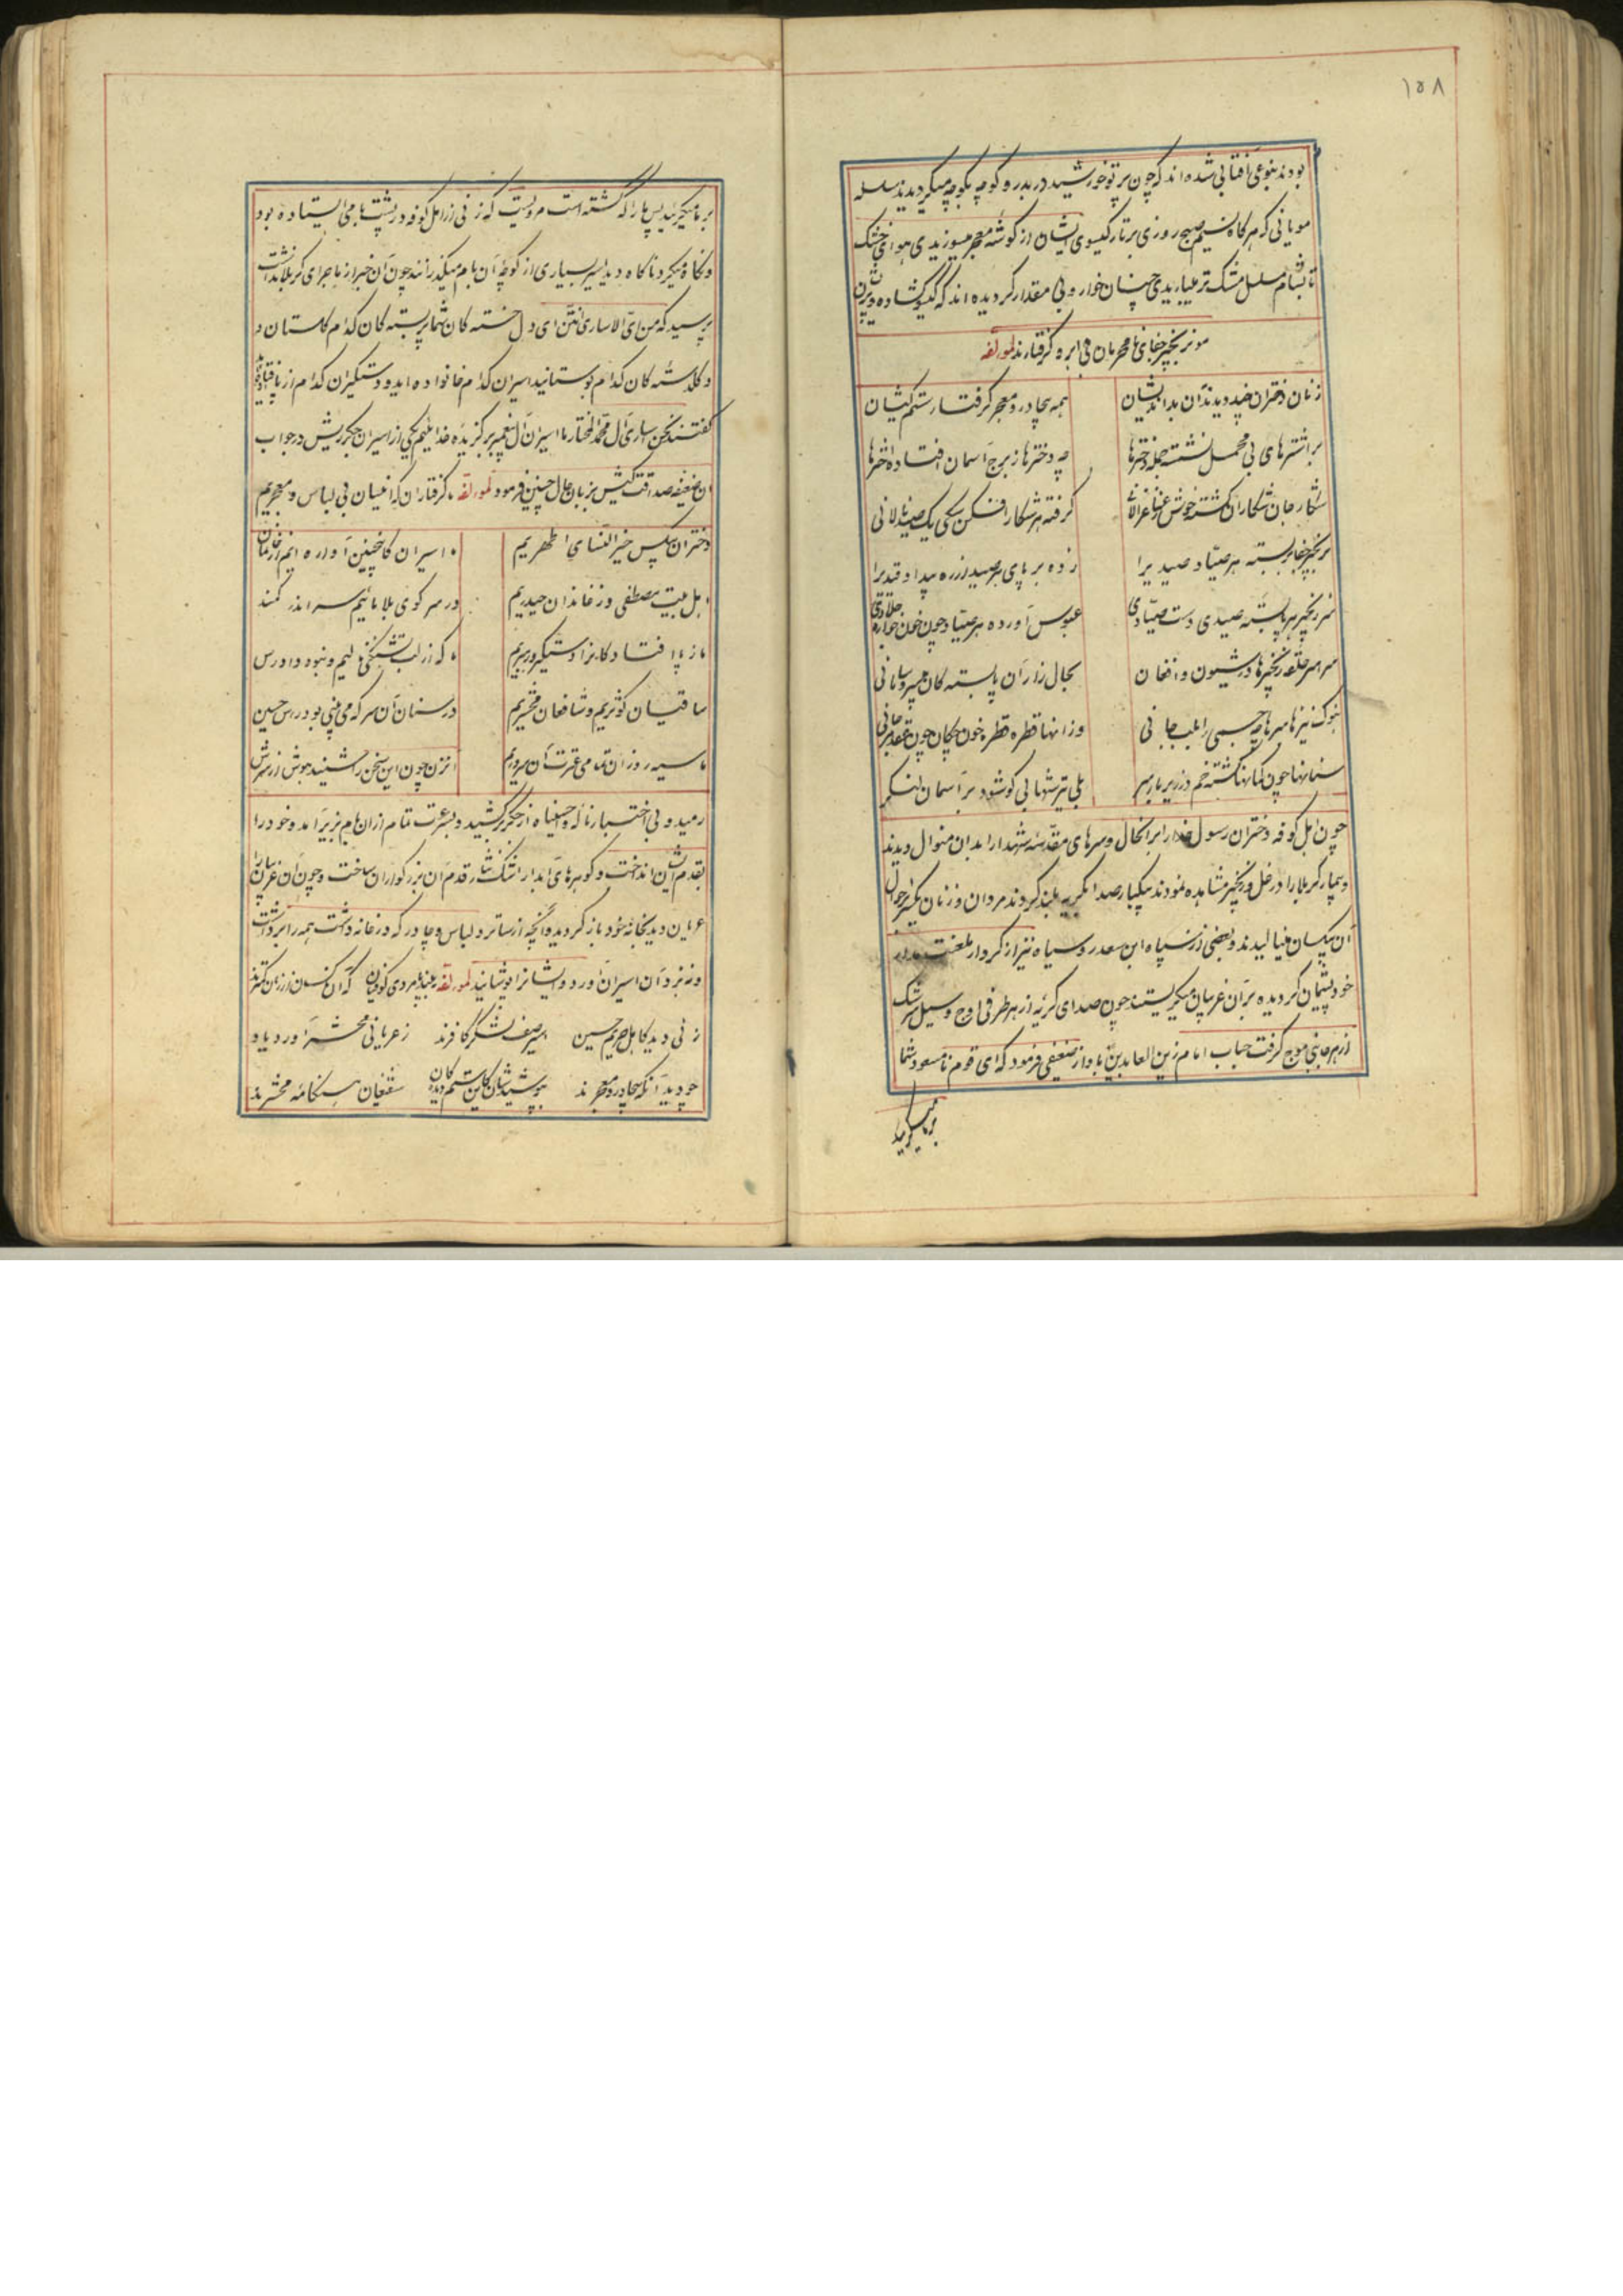 ۱۵۸
بودند بنوعی آفتابی شده اند که چون پرتو خورشید در بدر و کوچه بکوچه میکردیدند سلسله
مویانی که هر کاه نسیم صبح روزی بر تار کیسوی ایشان از کوشه معجر میوزیدی هوای خشک
تا بشام مسلسل مشک تر میباریدی چنان خوار و بی مقدار کردیده اند که کیسو کشاده و پریشان
مو بزنجیر جفای نامحرمان بی ابرو کرفتارند لمؤلفه
زنان دختران چه دیدند آن بد اندیشان
همه بیچادر و معجر کرفتار ستم کیشان
بر اشترهای بی محمل نشسته جمله دخترها
چه دخترها ز برج آسمان افتاده اخترها
شکار جان شکاران کشته خوش
کرفته هر شکار افکن یکی یک صید نالانی
بزنجیر جفا بربسته هر صیاد صیدیرا
زده بر پای هر صید از ره بیداد قیدیرا
سر زنجیر هر پابسته صیدی دست صیادی
عبوس آورده هر صیاد چون خون خواره جلادی
سراسر حلقه زنجیرها در شیون و افغان
بحال زار آن پابسته کان بیسر و سامانی
بنوک نیزها سرها چه جسمی را بلب جانی
وز آنها قطره قطره خون چکان چون
سنانها چون کمانها کشته خم در زیر بار سر
بلی تیر شهابی کو شود بر آسمان لنکر
چون اهل کوفه دختران رسول خدا را بر آنحال و سرهای مقدسه شهدا را بدان منوال دیدند
و بیمار کربلا را در غل و زنجیر مشاهده نمودند بیکبار صدا بکریه بلند کردند مردان و زنان یکسر بر احوال
آن بیکسان مینالیدند و بعضی از سپاه ابن سعد رو سیاه نیز از کردار
خود پشیمان کردیده بر آن غریبان میکریستند چون صدای کریه از هر طرفی اوج و سیل سرشک
از هر جانبی موج کرفت جناب امام زین العابدین بآواز ضعیفی فرمود که ای قوم نامسعود شما
بر ما میکریید
بر ما میکریید پس ما را که کشته است مرویست که زنی از اهل کوفه در پشت بامی ایستاده بود
و نکاه میکرد ناکاه دید اسیر بسیاری از کوچه آن بام میکذرانند چون آن خبر از ماجرای کربلا نداشت
پرسید که من ای الاساری انتن ای دل خسته کان شما پربسته کان کدام کلستان و
و کلدسته کان کدام بوستانید اسیران کدام خانواده اید و دستکیران کدام از پا افتاده
کفتند نحن اساری آل محمد المختار ما اسیران آل پیغمبر برکزیده خدائیم یکی از اسیران جکر ریش در جواب
آن ضعیفه صداقت کیش بزبان حال چنین فرمود لمؤلفه ما کرفتاران که اینسان بی لباس و معجریم
دختران بیکس خیر النسای اطهریم
ما اسیران کاینچنین آواره ایم از خانمان
اهل بیت مصطفی و ز خاندان حیدریم
در سر کوی بلا مائیم سر اندر کمند
ما ز پا افتادکانرا دستکیر و رهبریم
ما که از لب تشنکی نالیم و نبود دادرس
ساقیان کوثریم و شافعان محشریم
در سنان آن سر که می بینی بود راس حسین
ما سیه روزان تمامی عترت آن سروریم
آنزن چون این سخن را شنید هوش از سرش
رمید و بی اختیار ناله واحسیناه از جکر برکشید و بسرعت تمام از آن بام بزیر آمد و خود را
بقدم ایشان انداخت و کوهرهای آبدار اشک نثار قدم آن بزرکواران ساخت و چون آن غریبان را
عریان دید بخانه خود باز کردید و آنچه از ساتر و لباس و چادر که در خانه داشت همه را برداشت
و بنزد آن اسیران آورد و ایشانرا پوشانید لمؤلفه کوفیان که آن ناکسان از زنان کمترند
زنی دید کاهل حریم حسین
اسیر صف لشکر کافرند
ز عریانی محشر آورد یاد
چو دید آنکه بیچادر و معجرند
بپوشید شان کاین ستم دیده کان
شفیعان هنکامه محشرند